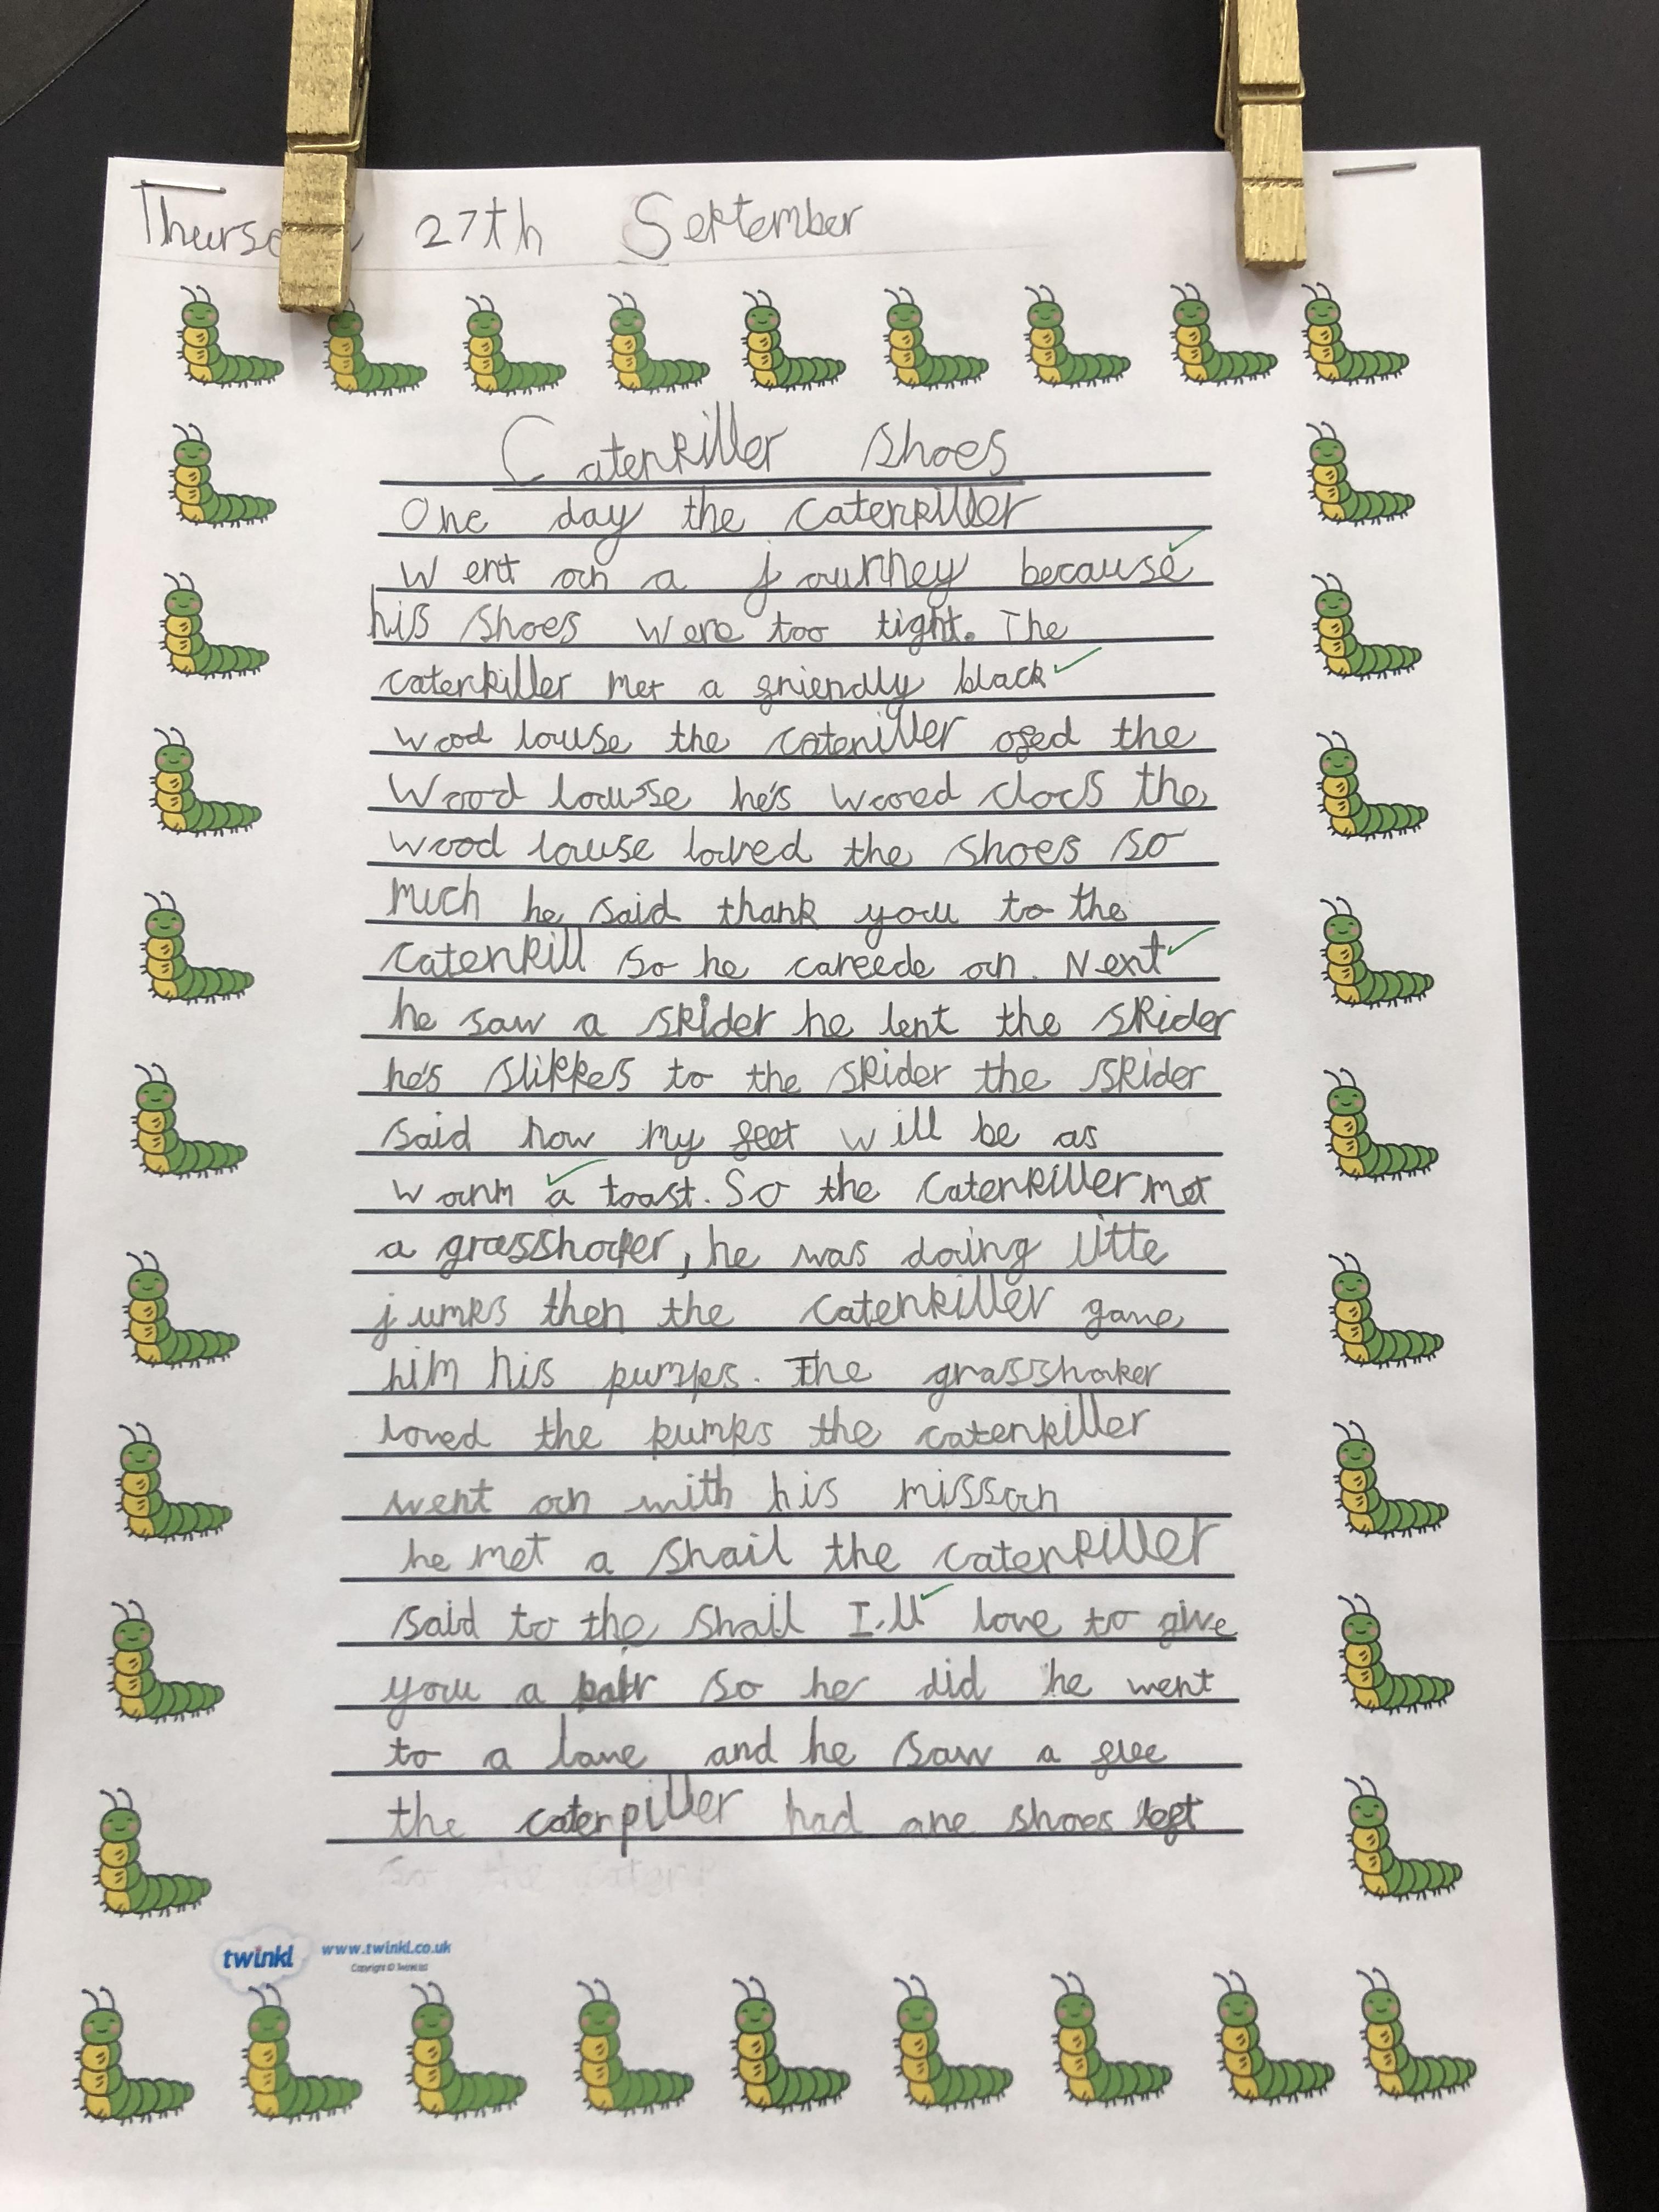 27th September
Caterpiller Shoes
One day the caterpiller
went on a journey because
his shoes were too tight. The
caterpiller met a friendly black
wood louse the cateriller ofed the
wood louse he's wooed clocs the
wood louse loved the shoes so
much he said thank you to the
caterpill so he careede on. Next
he saw a spider he lent the spider
he's slippes to the spider the spider
said now my feet will be as
warm a toast. So the caterpiller met
a grasshoper, he was doing litte
jumps then the caterpiller gave
him his pumps. The grasshoper
loved the pumps the caterpiller
went on with his misson
he met a snail the caterpiller
said to the snail I'll love to give
you a pair so he did he went
to a lane and he saw a flee
the caterpiller had one shoes left
so the caterp
twinkl www.twinkl.co.uk